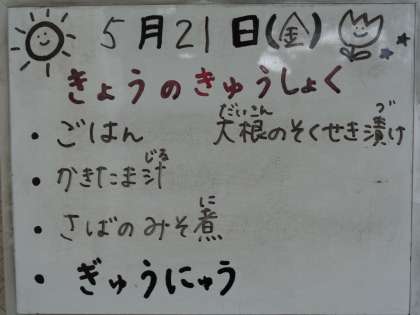 5月21日(金)
きょうのきゅうしょく
・ごはん 大根のそくせき漬け
だいこん づ
・かきたま汁
じる
・さばのみそ煮
に
・ぎゅうにゅう